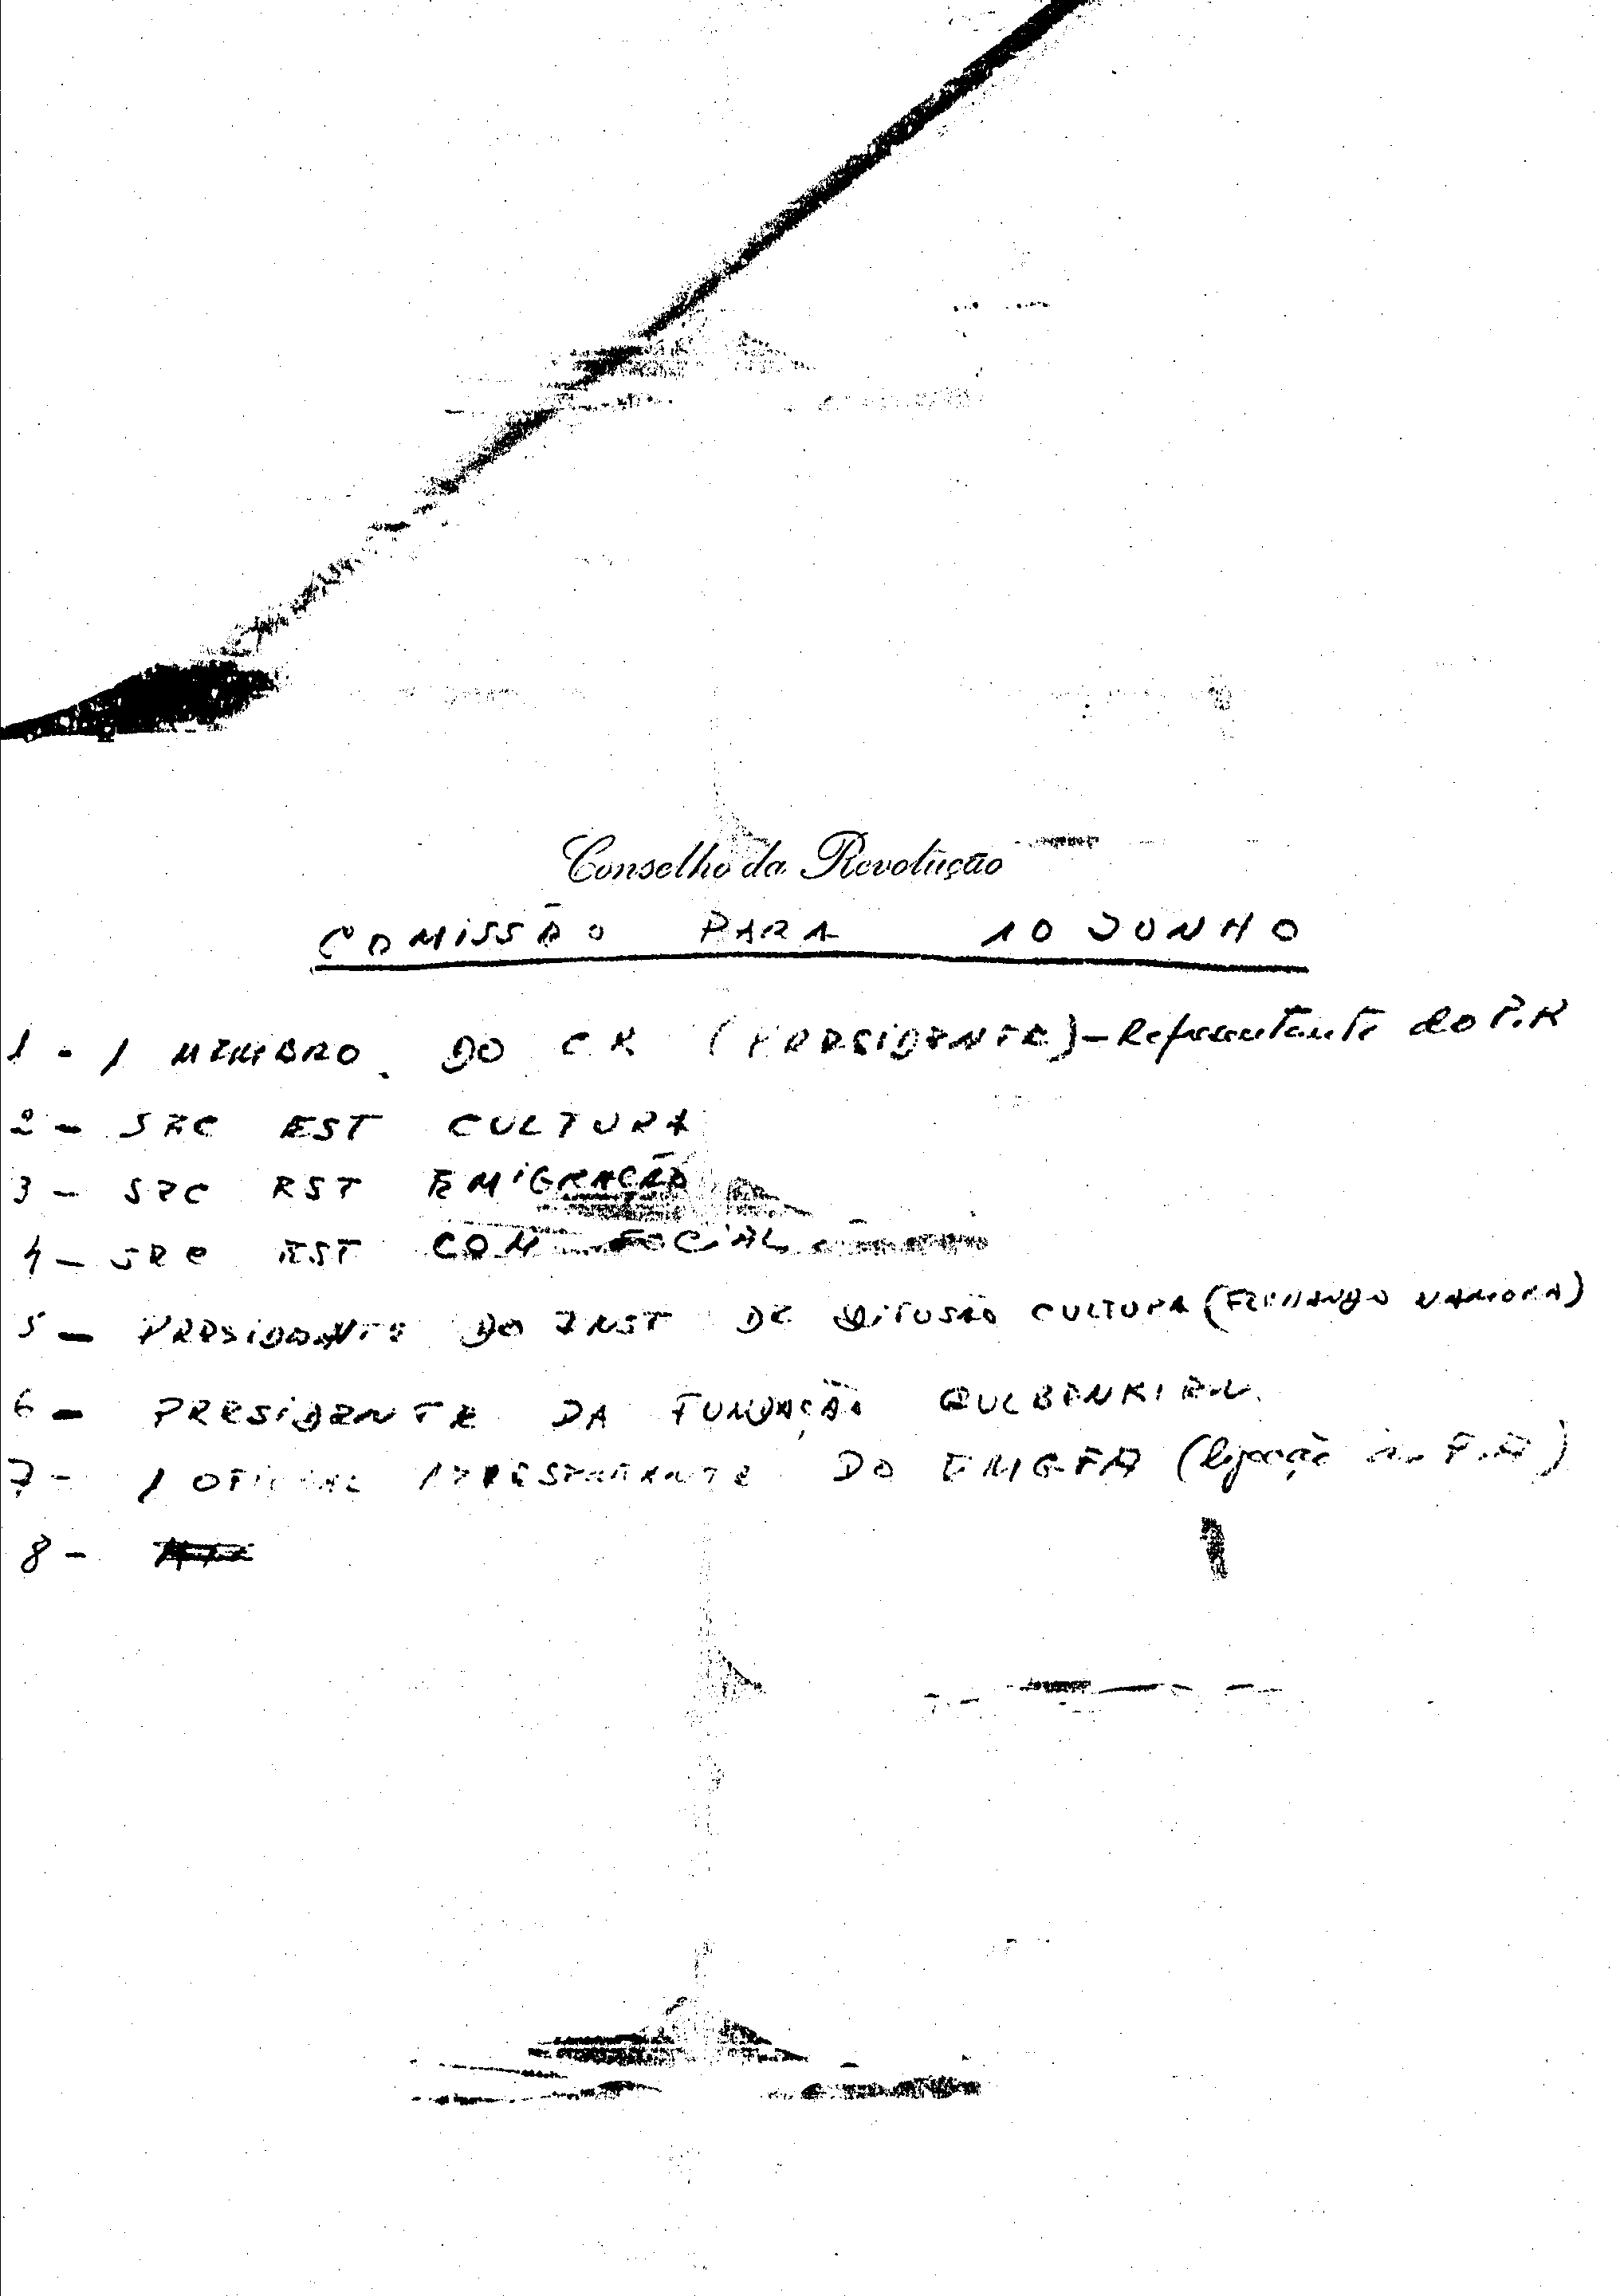 Conselho da Revolução
COMISSÃO PARA 10 JUNHO
1 - 1 MEMBRO DO CR (PRESIDENTE) - Representante do P.R
2 - SEC EST CULTURA
3 - SEC EST EMIGRAÇÃO
4 - SEC EST COM SOCIAL
5 - PRESIDENTE DO INST DE DIFUSÃO CULTURA (FERNANDO NAMORA)
6 - PRESIDENTE DA FUNDAÇÃO GULBENKIAN.
7 - 1 OFICIAL REPRESENTANTE DO EMGFA (ligação F.A)
8 -